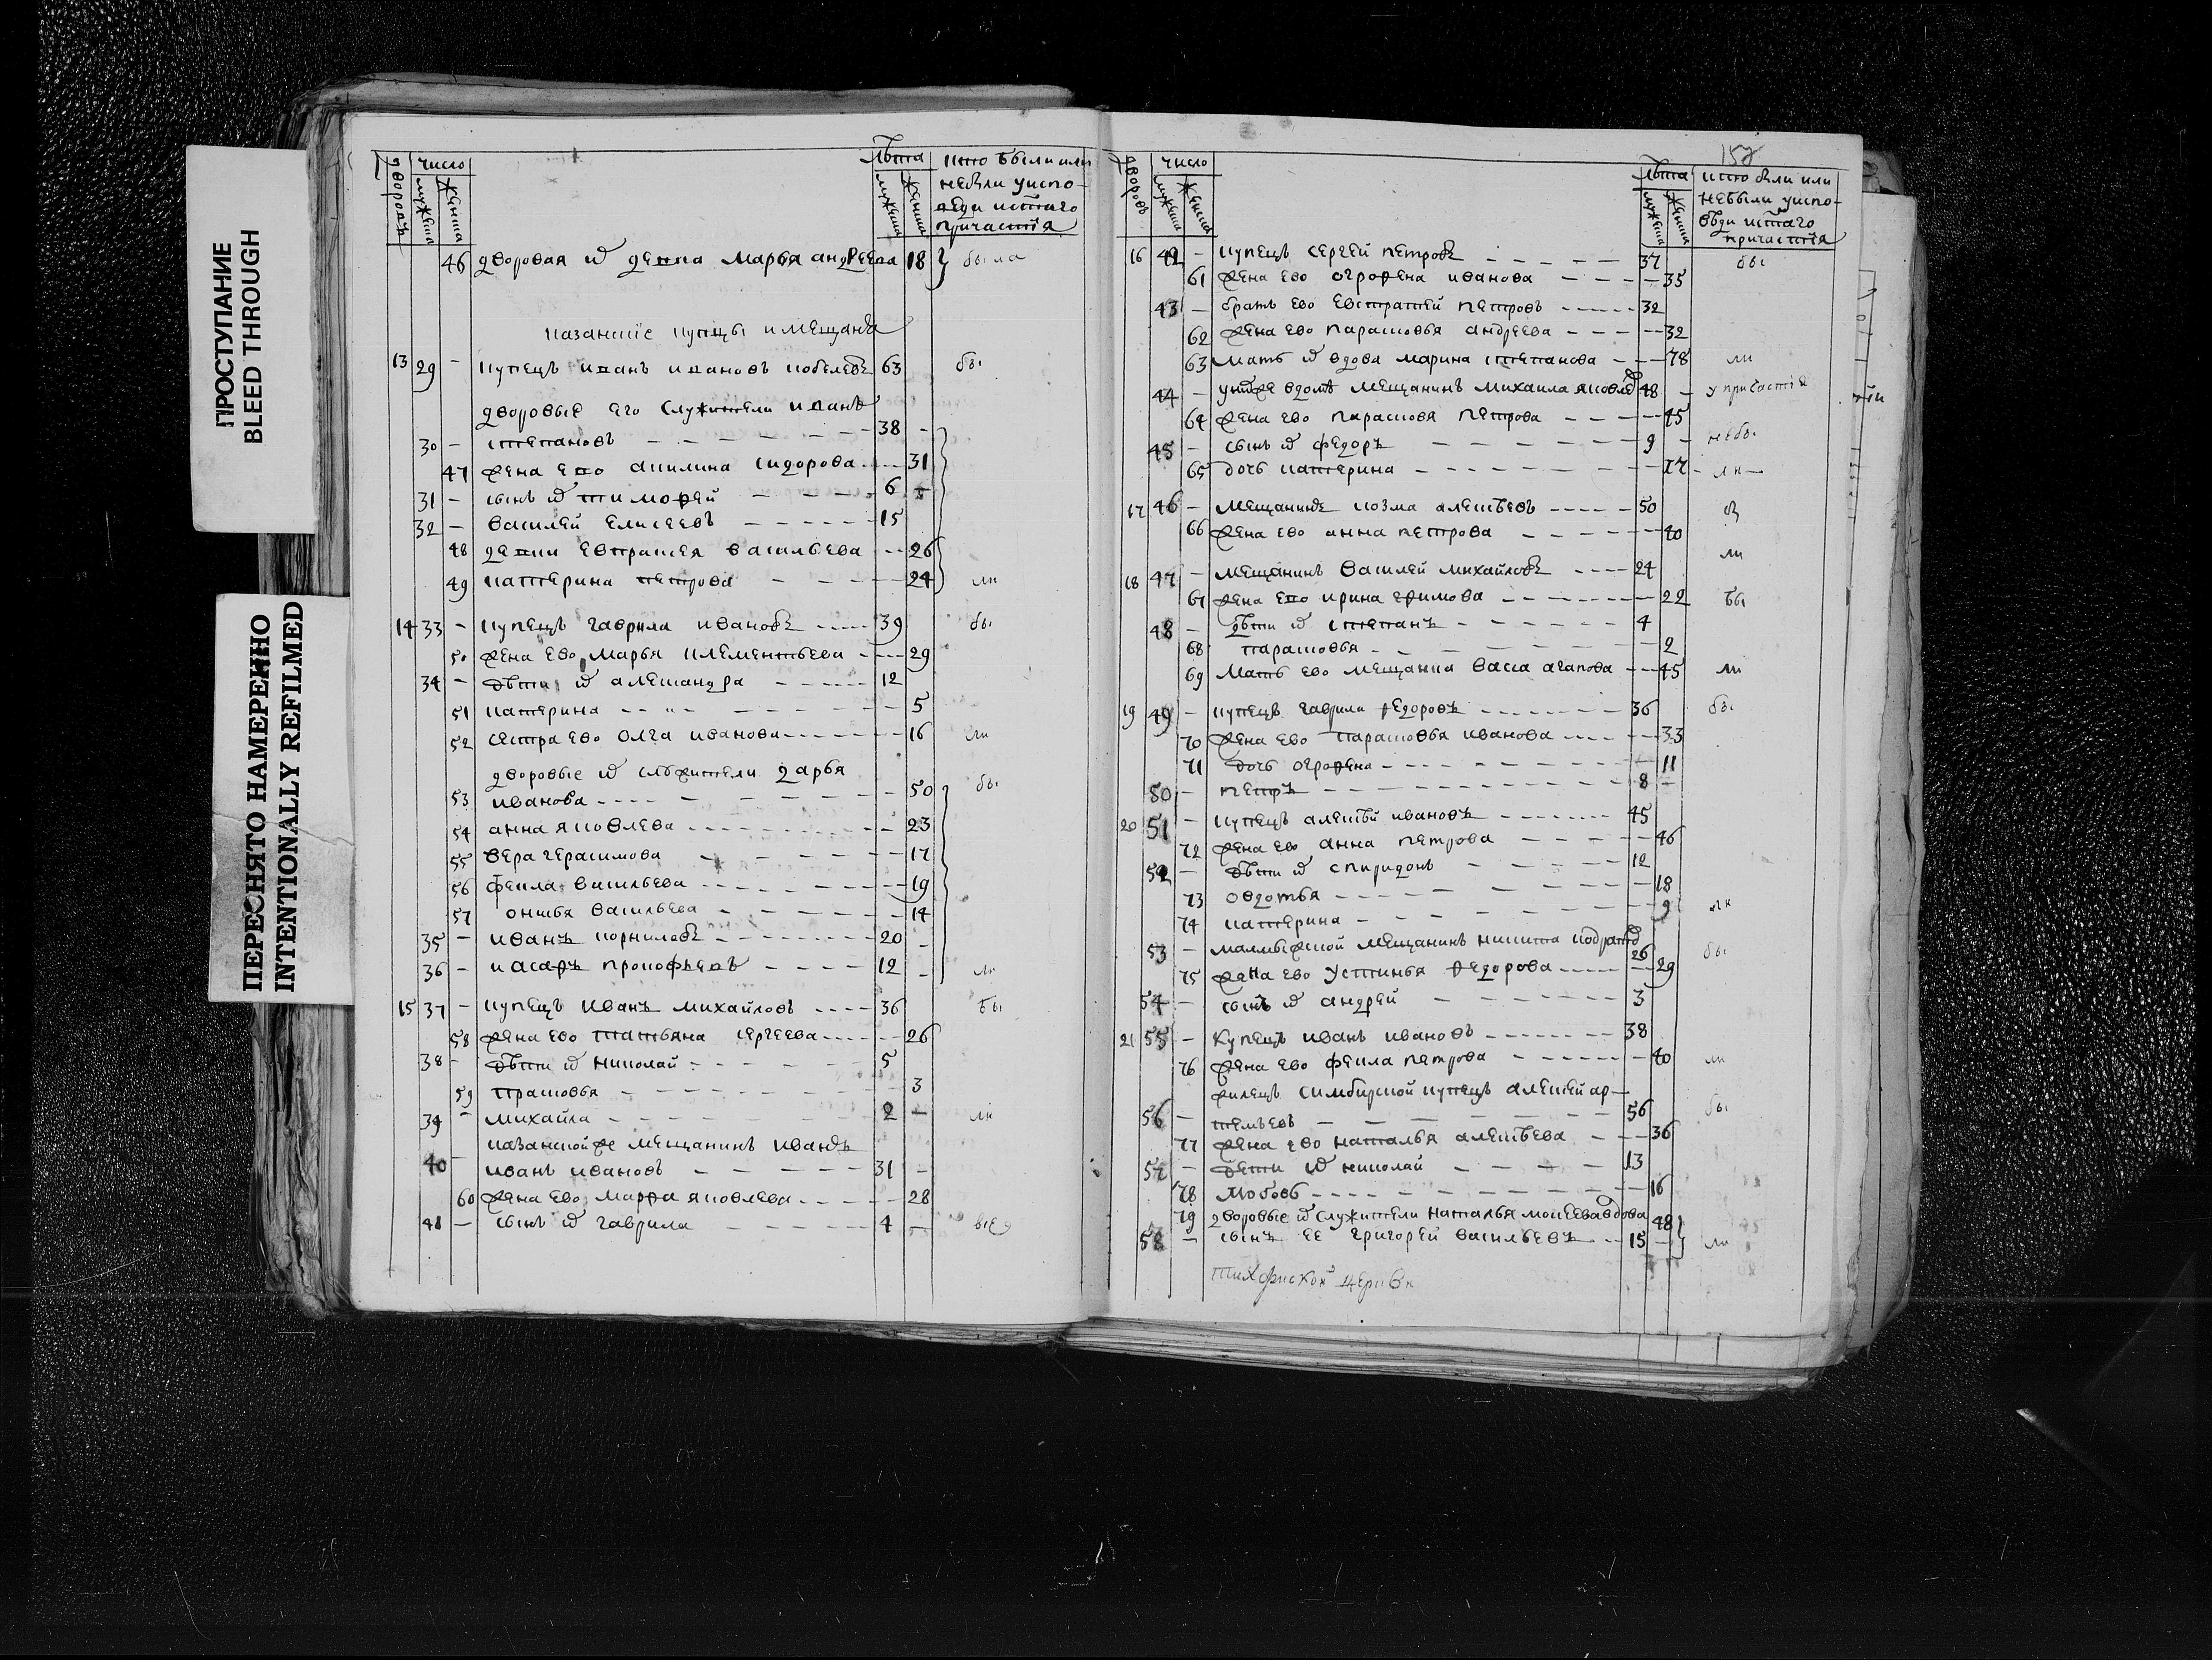 ПРОСТУПАНИЕ
BLEED THROUGH
ПЕРЕСНЯТО НАМЕРЕННО
INTENTIONALLY REFILMED
дворовъ число лѣта кто были или
мужеска женска мужеска женска небыли уиспо-
веди истаго
причастїя
46 дворовая и девка марья андреева 18 была
казанскїе купцы имещаня
13 29 - купецъ иванъ ивановъ кобелевъ 63 бы
дворовые его служители иванъ
30 - степановъ 38 -
47 жена ево акилина сидорова 31
31 - сынъ и тимофей 6
32 - василей елисеевъ 15
48 девки евпраксея васильева 26
49 катерина петрова 24 ли
14 33 - купецъ гаврила ивановъ 39 бы
50 жена ево марья клементьева 29
34 - дѣти и александра 12
51 катерина 5
52 сестра ево олга иванова 16 ли
дворовые и служители дарья
53 иванова 50 бы
54 анна яковлева 23
55 вера герасимова 17
56 фекла васильева 19
57 васильева 14
35 - иванъ корниловъ 20 -
36 - прокофьевъ 12 - ли
15 37 - купецъ иванъ михайловъ 36 бы
58 жена ево татьяна сергеева 26
38 - дѣти и николай 5
59 прасковья 3
39 - михайла 2 - ли
казанскойже мещанинъ иванъ
40 - иванъ ивановъ 31 -
60 жена ево марфа яковлева 28
41 - сынъ и гаврила 4 - все
157
дворовъ число лѣта кто были или
мужеска женска мужеска женска небыли уиспо-
вѣди истаго
причастїя
16 42 - купецъ сергей петровъ 37 бы
61 жена ево огрофена иванова 35
43 - братъ ево евстратей петровъ 32
62 жена ево парасковья андреева 32
63 мать и вдова марина степанова 78 ли
44 - унихже вдомѣ мещанинъ михаила яковлевъ 48 - у причастїя
64 жена ево парасковя петрова 45
45 - сынъ и федоръ 9 - небы
65 дочь катерина 17 ли
17 46 - мещанинъ козма алексѣевъ 50
66 жена ево анна петрова 40
ли
18 47 - мещанинъ василей михайловъ 24
67 жена ево ирина ефимова 22 бы
48 - дѣти и степанъ 4
68 парасковья 2
69 мать ево мещанка васса агапова 45 ли
19 49 - купецъ гаврила федоровъ 36 бы
70 жена ево парасковья иванова 33
71 дочь огрофена 11
50 - петръ 8 -
20 51 - купецъ алексѣй ивановъ 45
72 жена ево анна петрова 46
52 - дѣти и спиридонъ 12
73 овдотья 18
74 катерина 9 ли
53 - малмыжской мещанинъ никита 26 бы
75 жена ево устинья федорова 29
54 - сынъ и андрей 3
21 55 - купецъ иванъ ивановъ 38
76 жена ево фекла петрова 40 ли
жилецъ симбирской купецъ алексей ар-
56 - темьевъ 56 бы
77 жена ево наталья алексѣева 36
57 - дети и николай 13
78 любовь 16
79 дворовые и служители наталья моисеева вдова 48
58 - сынъ ее григорей васильевъ 15 - ли
церкви